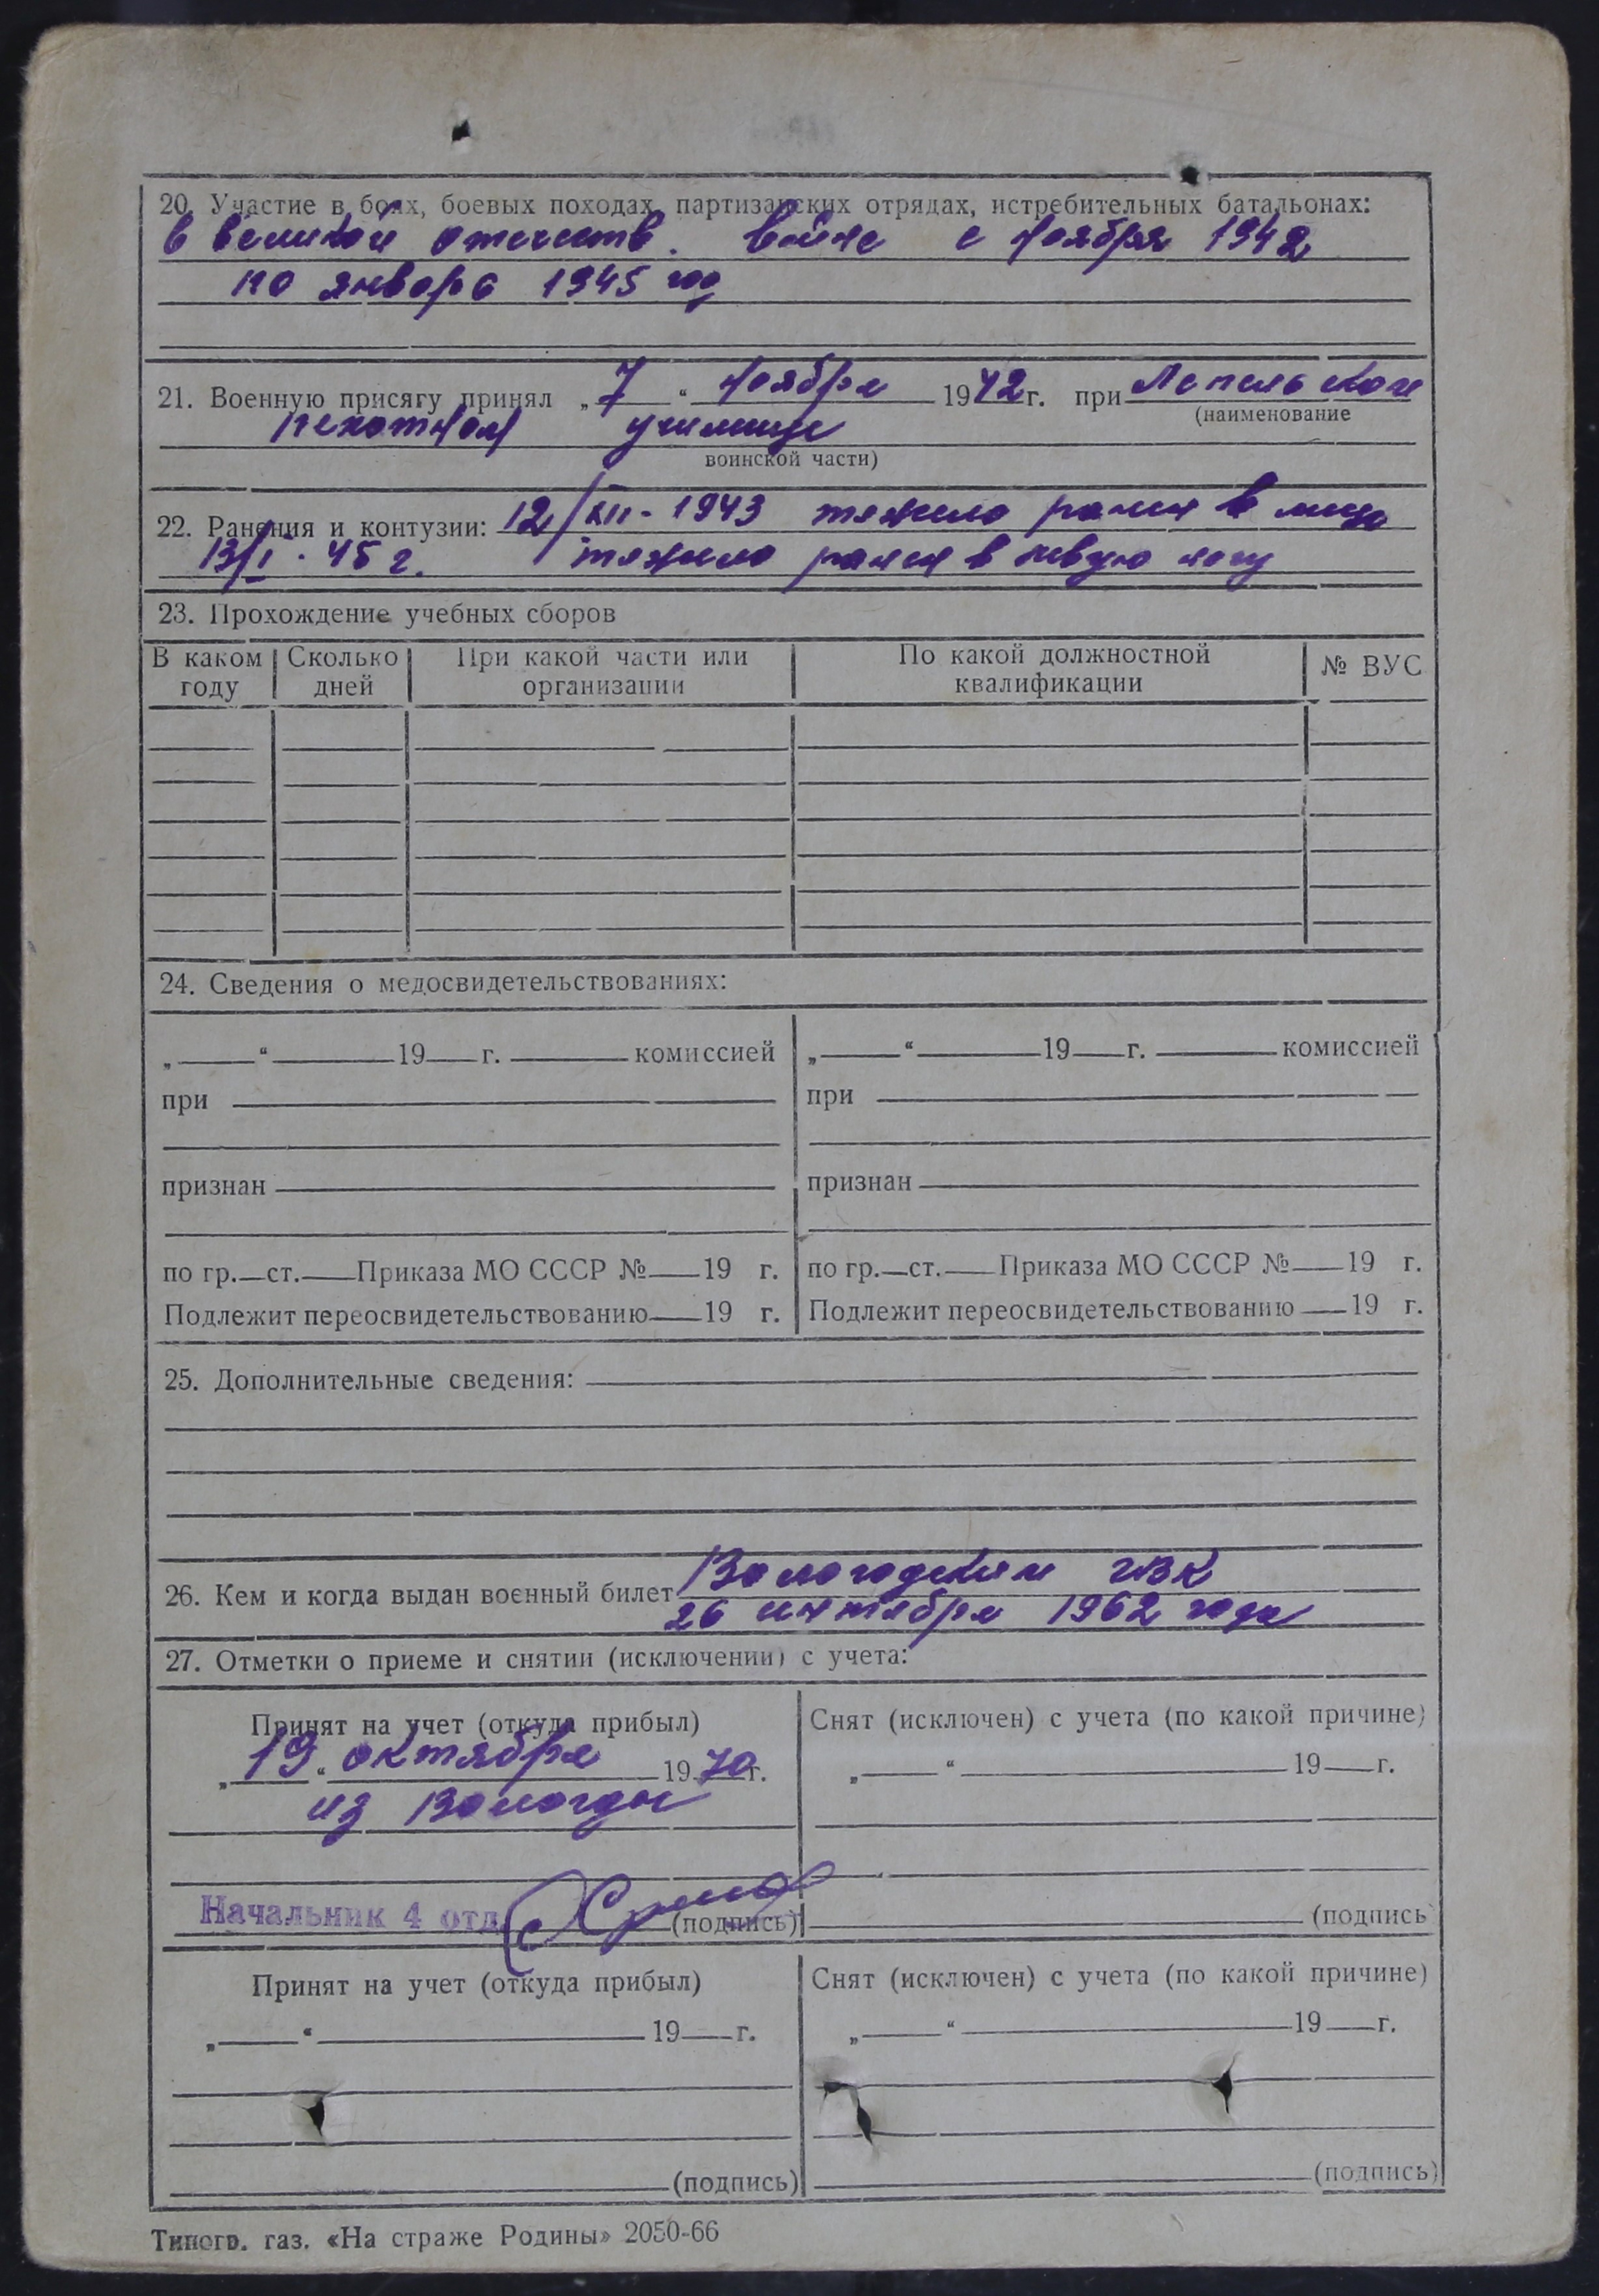 20. Участие в боях, боевых походах, партизанских отрядах, истребительных батальонах:
в великой отечеств. войне с ноября 1942
по январь 1945 год
21. Военную присягу принял „7“ ноября 1942 г. при Лепельском
(наименование
пехотном училище
воинской части)
22. Ранения и контузии: 12/XII-1943 тяжело ранен в лицо
13/I-45 г. тяжело ранен в левую ногу
23. Прохождение учебных сборов
В каком году Сколько дней При какой части или организации По какой должностной квалификации № ВУС
24. Сведения о медосвидетельствованиях:
„ “ 19 г. комиссией „ “ 19 г. комиссией
при при
признан признан
по гр. ст. Приказа МО СССР № 19 г. по гр. ст. Приказа МО СССР № 19 г.
Подлежит переосвидетельствованию 19 г. Подлежит переосвидетельствованию 19 г.
25. Дополнительные сведения:
26. Кем и когда выдан военный билет Вологодским ГВК
26 сентября 1962 года
27. Отметки о приеме и снятии (исключении) с учета:
Принят на учет (откуда прибыл) Снят (исключен) с учета (по какой причине)
„19“ октября 1970 г. „ “ 19 г.
из Вологды
Начальник 4 отд. (подпись) (подпись)
Принят на учет (откуда прибыл) Снят (исключен) с учета (по какой причине)
„ “ 19 г. „ “ 19 г.
(подпись) (подпись)
Типогр. газ. «На страже Родины» 2050-66